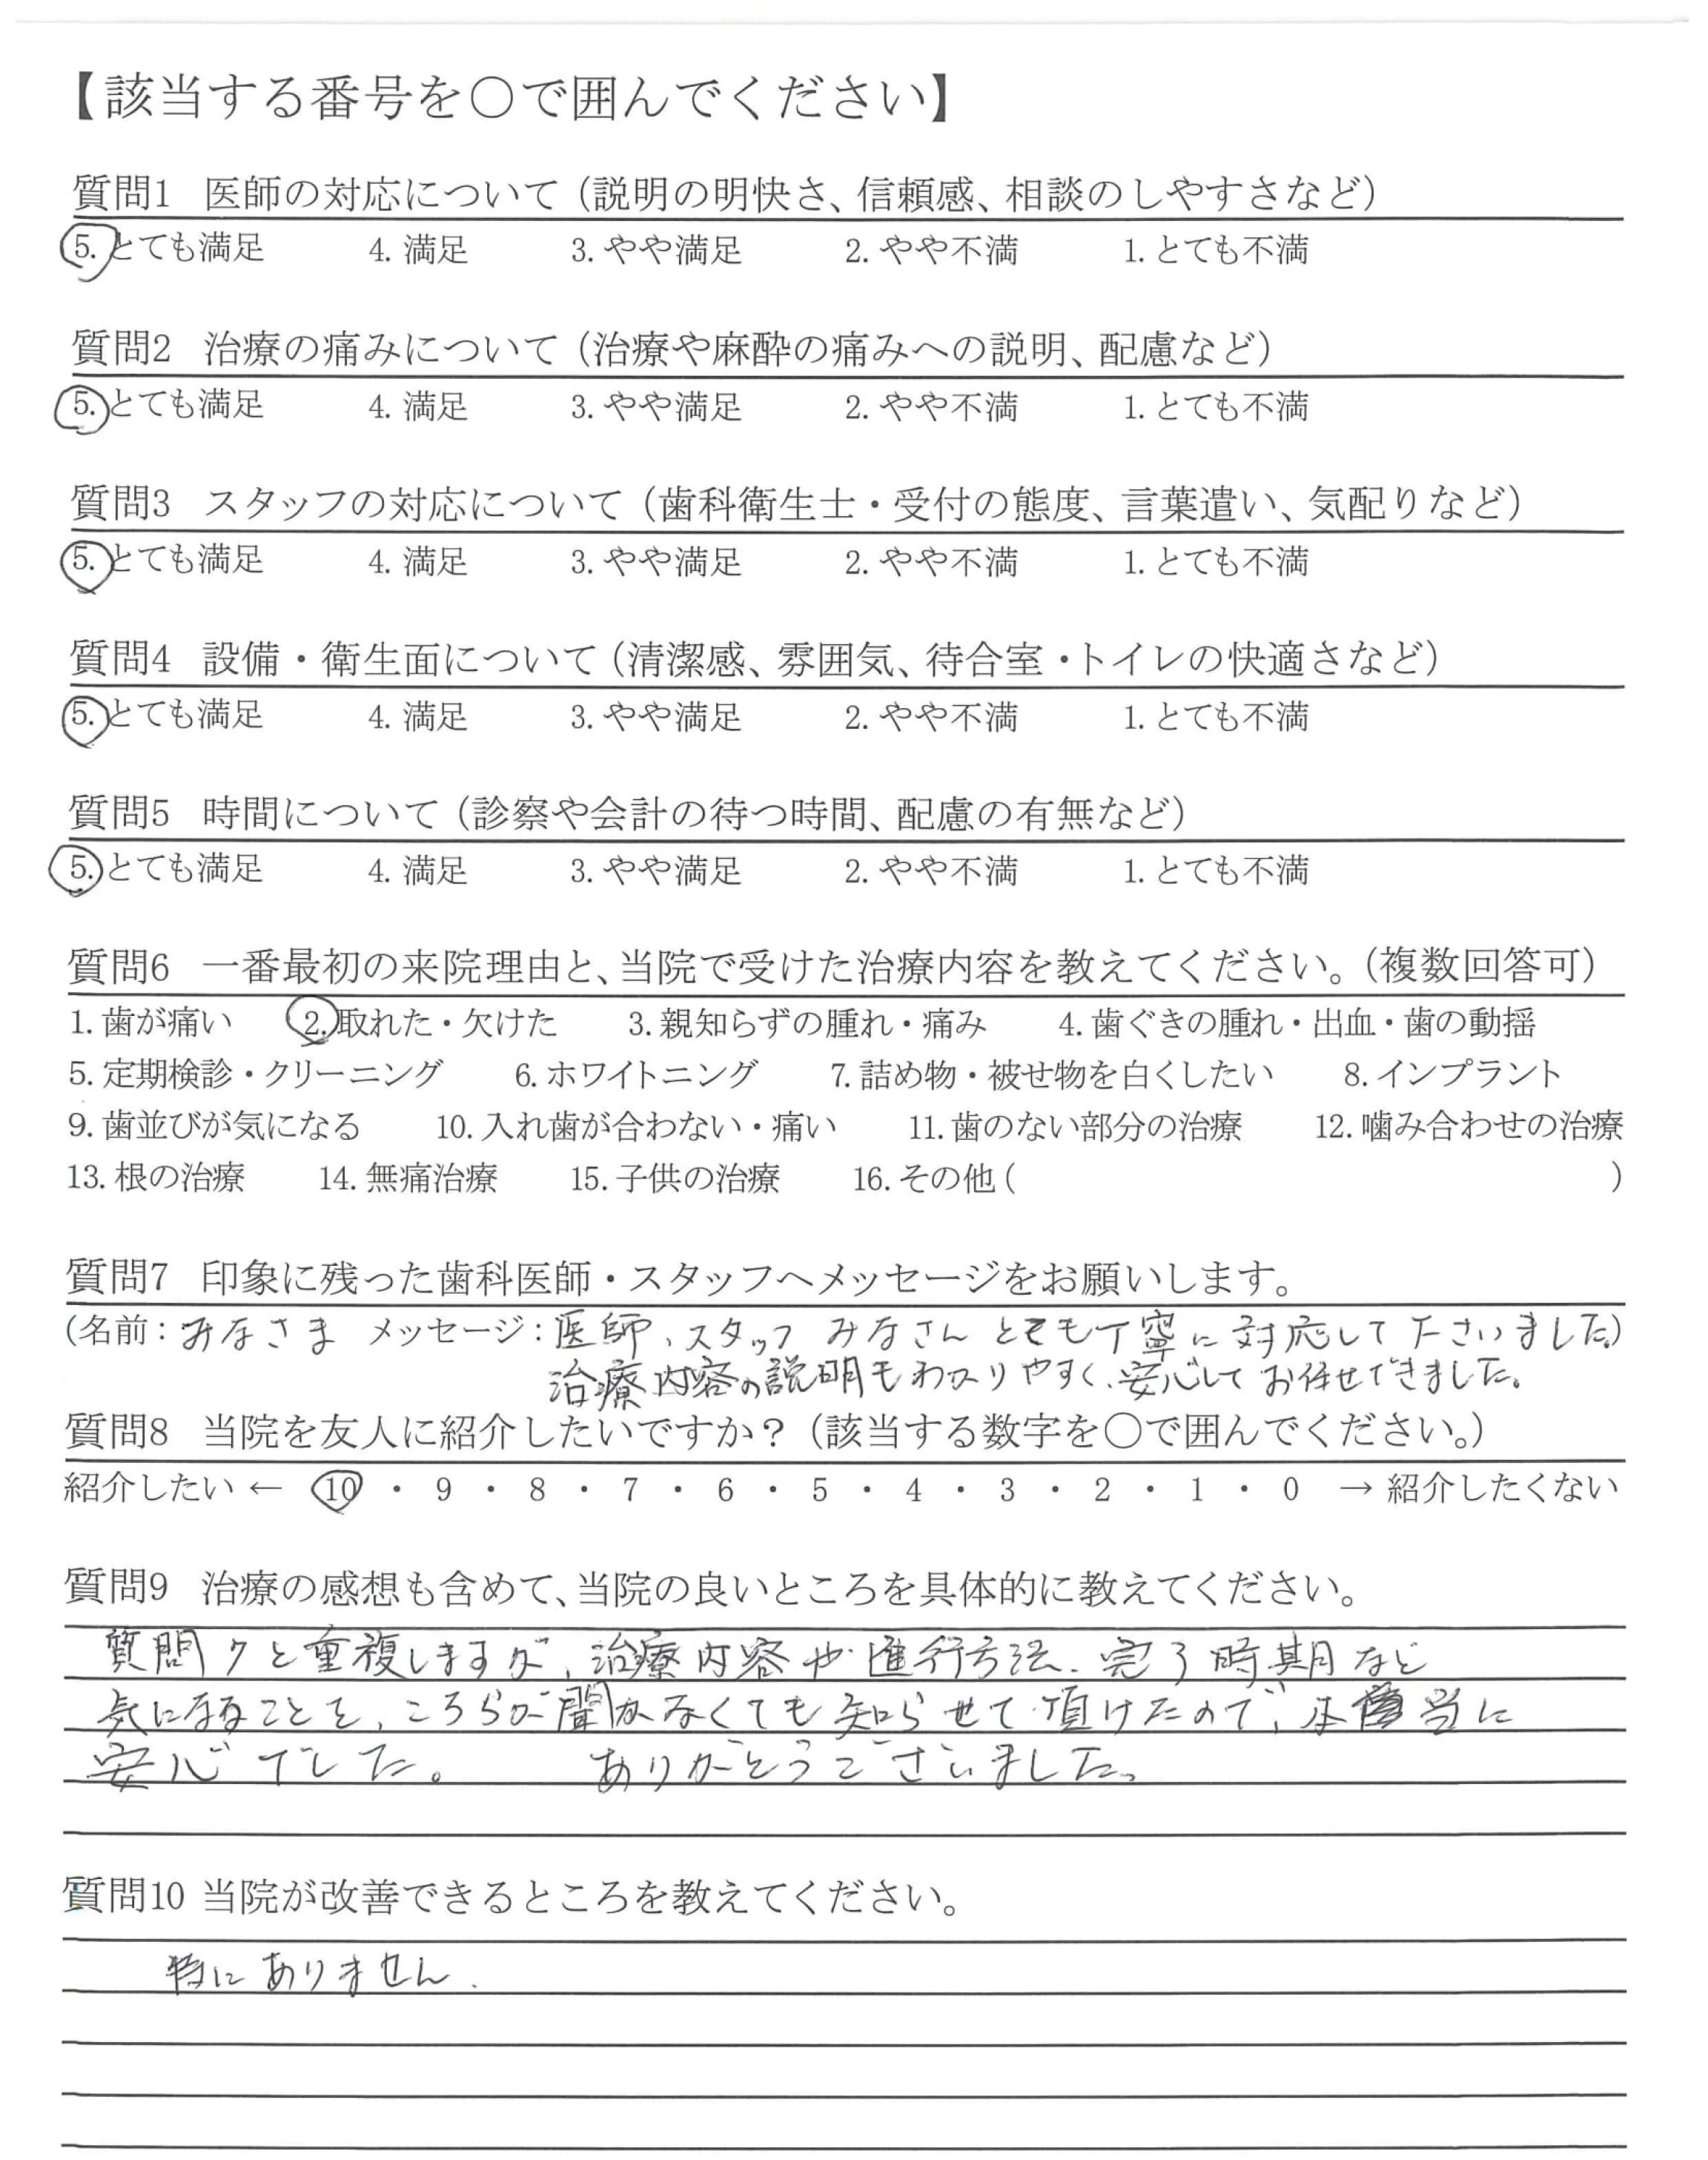 【該当する番号を○で囲んでください】
質問1 医師の対応について（説明の明快さ、信頼感、相談のしやすさなど）
5. とても満足 4. 満足 3. やや満足 2. やや不満 1. とても不満
質問2 治療の痛みについて（治療や麻酔の痛みへの説明、配慮など）
5. とても満足 4. 満足 3. やや満足 2. やや不満 1. とても不満
質問3 スタッフの対応について（歯科衛生士・受付の態度、言葉遣い、気配りなど）
5. とても満足 4. 満足 3. やや満足 2. やや不満 1. とても不満
質問4 設備・衛生面について（清潔感、雰囲気、待合室・トイレの快適さなど）
5. とても満足 4. 満足 3. やや満足 2. やや不満 1. とても不満
質問5 時間について（診察や会計の待つ時間、配慮の有無など）
5. とても満足 4. 満足 3. やや満足 2. やや不満 1. とても不満
質問6 一番最初の来院理由と、当院で受けた治療内容を教えてください。（複数回答可）
1. 歯が痛い 2. 取れた・欠けた 3. 親知らずの腫れ・痛み 4. 歯ぐきの腫れ・出血・歯の動揺
5. 定期検診・クリーニング 6. ホワイトニング 7. 詰め物・被せ物を白くしたい 8. インプラント
9. 歯並びが気になる 10. 入れ歯が合わない・痛い 11. 歯のない部分の治療 12. 噛み合わせの治療
13. 根の治療 14. 無痛治療 15. 子供の治療 16. その他（ ）
質問7 印象に残った歯科医師・スタッフへメッセージをお願いします。
（名前：みなさま メッセージ：医師、スタッフ みなさん とても丁寧に 対応して 下さいました。）
治療内容の説明もわかりやすく、安心して お任せできました。
質問8 当院を友人に紹介したいですか？（該当する数字を○で囲んでください。）
紹介したい ← 10 ・ 9 ・ 8 ・ 7 ・ 6 ・ 5 ・ 4 ・ 3 ・ 2 ・ 1 ・ 0 → 紹介したくない
質問9 治療の感想も含めて、当院の良いところを具体的に教えてください。
質問7と重複しますが、治療内容や進行方法、完了時期など
気になることを、こちらが聞かなくても知らせて頂けたので、本当に
安心でした。 ありがとうございました。
質問10 当院が改善できるところを教えてください。
特にありません.